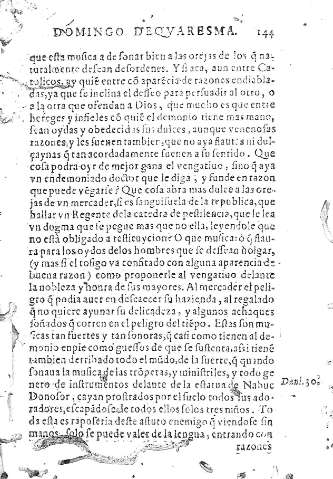 DOMINGO DEQVARESMA. 144
que esta musica a de sonar bien a las orejas de los q̃ na
turalmente desean desordenes. Y si aca, aun entre Ca-
tolicos, ay quiē entre cō aparēcia de razones endiabla-
das, ya que se inclina el deseo para persuadir al otro, o
a la otra que ofendan a Dios, que mucho es que entre
hereges y infieles cō quiē el demonio tiene mas mano,
sean oydas y obedecidas sus dulces, aunque venenosas
razones, y les suenen tambien, que no aya flauta ni dul-
çaynas q̃ tan acordamente suenen a su sentido. Que
cosa podra oyr de mejor gana el vengatiuo, sino q̃ aya
vn endemoniado doctor que le diga, y funde en razon
que puede vēgarse? Que cosa abra mas dulce a las ore-
jas de vn mercader, si es sanguisuela de la republica, que
hallar vn Regente de la catedra de pestilencia, que le lea
vn dogma que se pegue mas que no ella, leyendole que
no está obligado a restitucyone? O que musica ro q̃ flau-
ra para los oydos de los hombres que se desean holgar,
(y mas si el tosigo va confitado con alguna aparencia de
buena razon) como proponerle al vengatiuo delante
la nobleza y honra de sus mayores. Al mercader el peli-
gro q̃ podia auer en descaecer su hazienda, al regalado
q̃ no quiere ayunar su delicadeza, y algunos achaques
soñados q̃ corren en el peligro del tiēpo. Estas son mu-
sicas tan fuertes y tan sonoras, q̃ casi como tienen al de-
monio en pie como guessos de que se sustenta, assi tienē
tambien derribado todo el mūdo, de la suerte, q̃ quando
sonaua la musica de las trōpetas, y ministriles, y todo ge
nero de instrumentos delante de la estatua de Nabuc
Donosor, cayan prostrados por el suelo todos sus ado-
radores, escapādose de todos ellos solos tres niños. To
da esta es raposeria deste astuto enemigo q̃ viendose sin
manos, solo se puede valer de la lengua, entrando con
razones
Dani. 3.